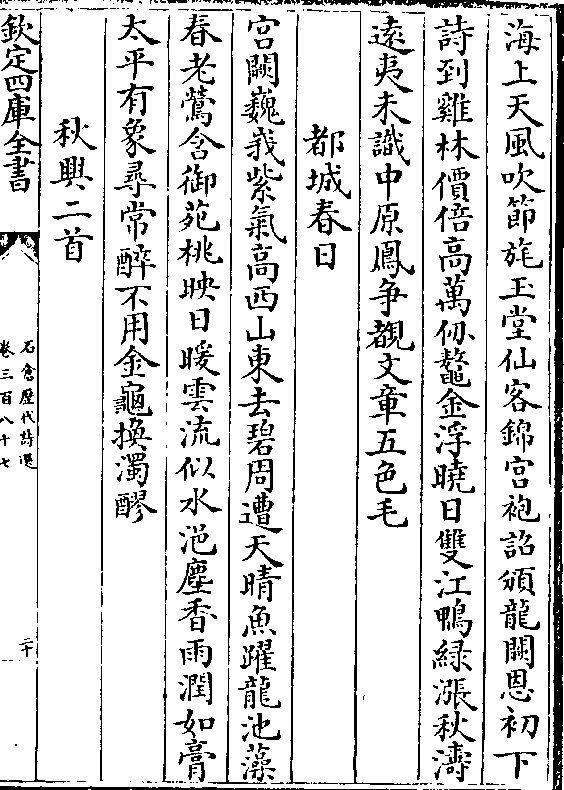 海上天風吹節旄玉堂仙客錦宮袍詔頒龍闕恩初下
詩到雞林價倍高萬仭鼇金浮曉日雙江鴨綠漲秋濤
遠夷未識中原鳳爭覩文章五色毛
都城春日
宮闕巍峩紫氣高西山東去碧周遭天晴魚躍龍池藻
春老鶯含御苑桃映日暖雲流似水浥塵香雨潤如膏
太平有象尋常醉不用金龜換濁醪
秋興二首
欽定四庫全書
石倉歴代詩選
卷三百八十七
二十